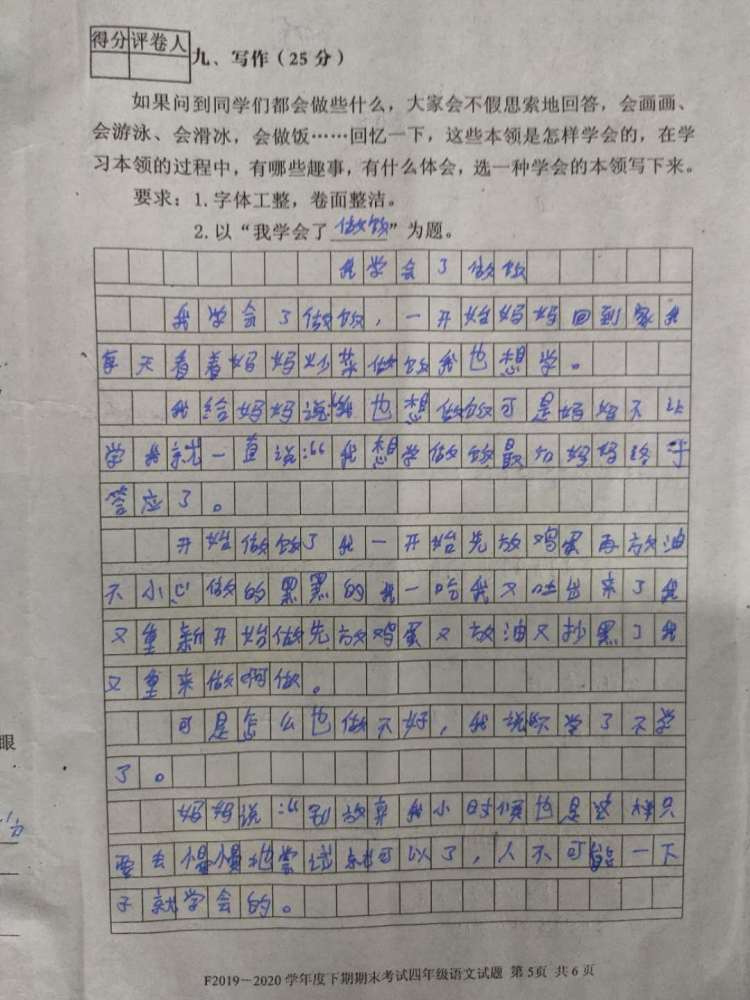 得分 评卷人
九、写作(25分)
如果问到同学们都会做些什么，大家会不假思索地回答，会画画、
会游泳、会滑冰，会做饭……回忆一下，这些本领是怎样学会的，在学
习本领的过程中，有哪些趣事，有什么体会，选一种学会的本领写下来。
要求：1.字体工整，卷面整洁。
2.以“我学会了做饭”为题。
我学会了做饭
我学会了做饭，一开始妈妈回到家我
每天看着妈妈炒菜做饭我也想学。
我给妈妈说：“我也想做饭可是妈妈不让
学我就一直说：“我想学做饭最切妈妈终于
答应了。
开始做饭了我一开始先放鸡蛋再放油
不小心做的黑黑的我一吃我又吐出来了我
又重新开始做先放鸡蛋又放油又抄黑了我
又重来做啊做。
可是怎么也做不好，我说不学了不学
了。
妈妈说：“别放弃我小时候也是这样只
要去慢慢地尝试就可以了，人不可能一下
子就学会的。
眼
F2019－2020学年度下期期末考试四年级语文试题 第5页 共6页